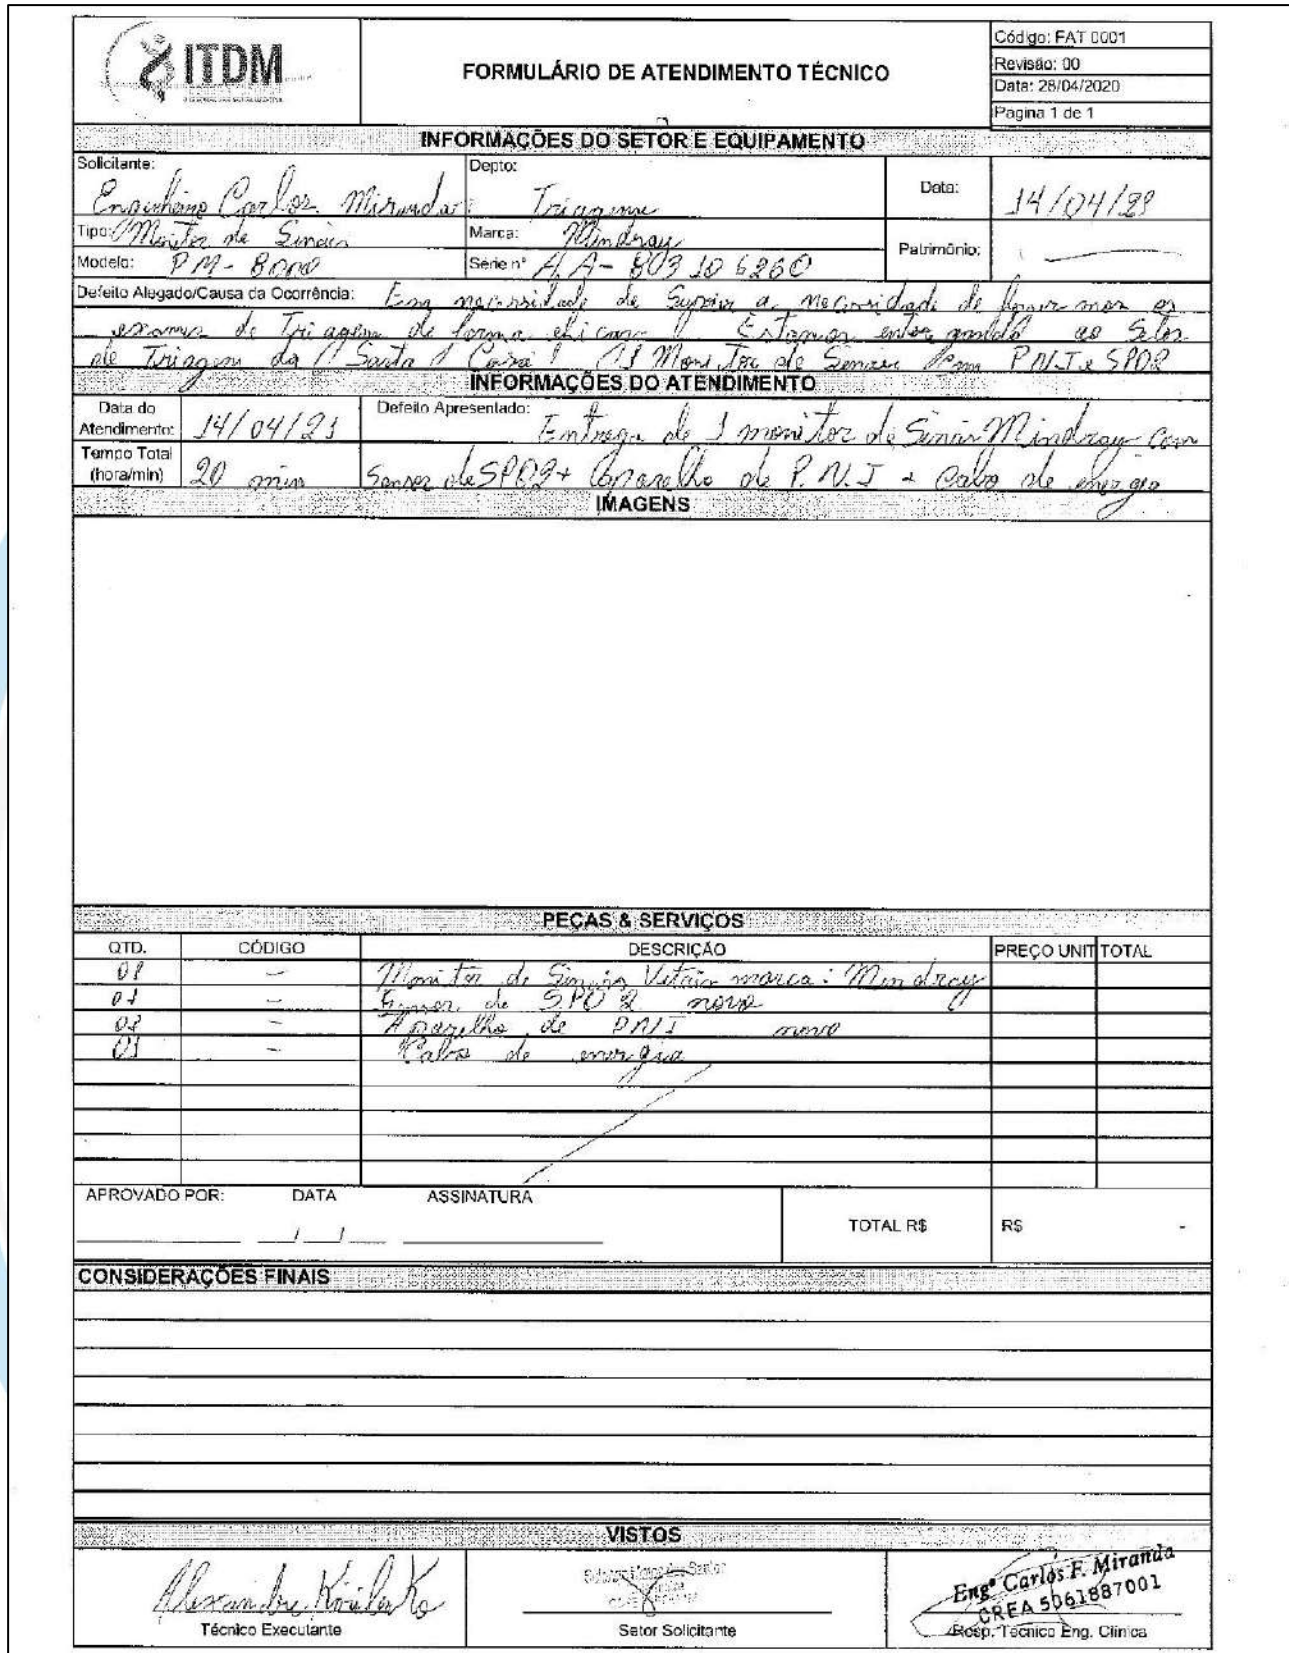 ITDM
FORMULÁRIO DE ATENDIMENTO TÉCNICO
Código: FAT 0001
Revisão: 00
Data: 28/04/2020
Pagina 1 de 1
INFORMAÇÕES DO SETOR E EQUIPAMENTO
Solicitante: Engenheiro Carlos Miranda
Depto: Triagem
Data: 14/04/21
Tipo: Monitor de Sinais
Marca: Mindray
Patrimônio: —
Modelo: PM-8000
Série nº AA-803106260
Defeito Alegado/Causa da Ocorrência: Em necessidade de Suprir a necessidade de os
exames de Triagem de forma Estamos ao Setor
de Triagem da Santa Casa 1 Monitor de Sinais PNI e SPO2
INFORMAÇÕES DO ATENDIMENTO
Data do Atendimento: 14/04/21
Defeito Apresentado: Entrega de 1 monitor de Sinais Mindray com
Tempo Total (hora/min) 20 min
Sensor de SPO2 + Aparelho de P.N.I + Cabo de energia
IMAGENS
PEÇAS & SERVIÇOS
QTD. CÓDIGO DESCRIÇÃO PREÇO UNIT TOTAL
01 — Monitor de Sinais Vitais marca: Mindray
01 — Sensor de SPO2 novo
01 — Aparelho de PNI novo
01 — Cabo de energia
APROVADO POR: DATA ASSINATURA
TOTAL R$ R$ -
CONSIDERAÇÕES FINAIS
VISTOS
Alexandre
Técnico Executante
Setor Solicitante
Engº Carlos F. Miranda
CREA 5061887001
Resp. Técnico Eng. Clínica